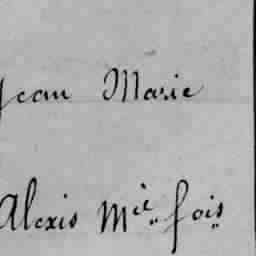 Jean Marie
Alexis Mie fois